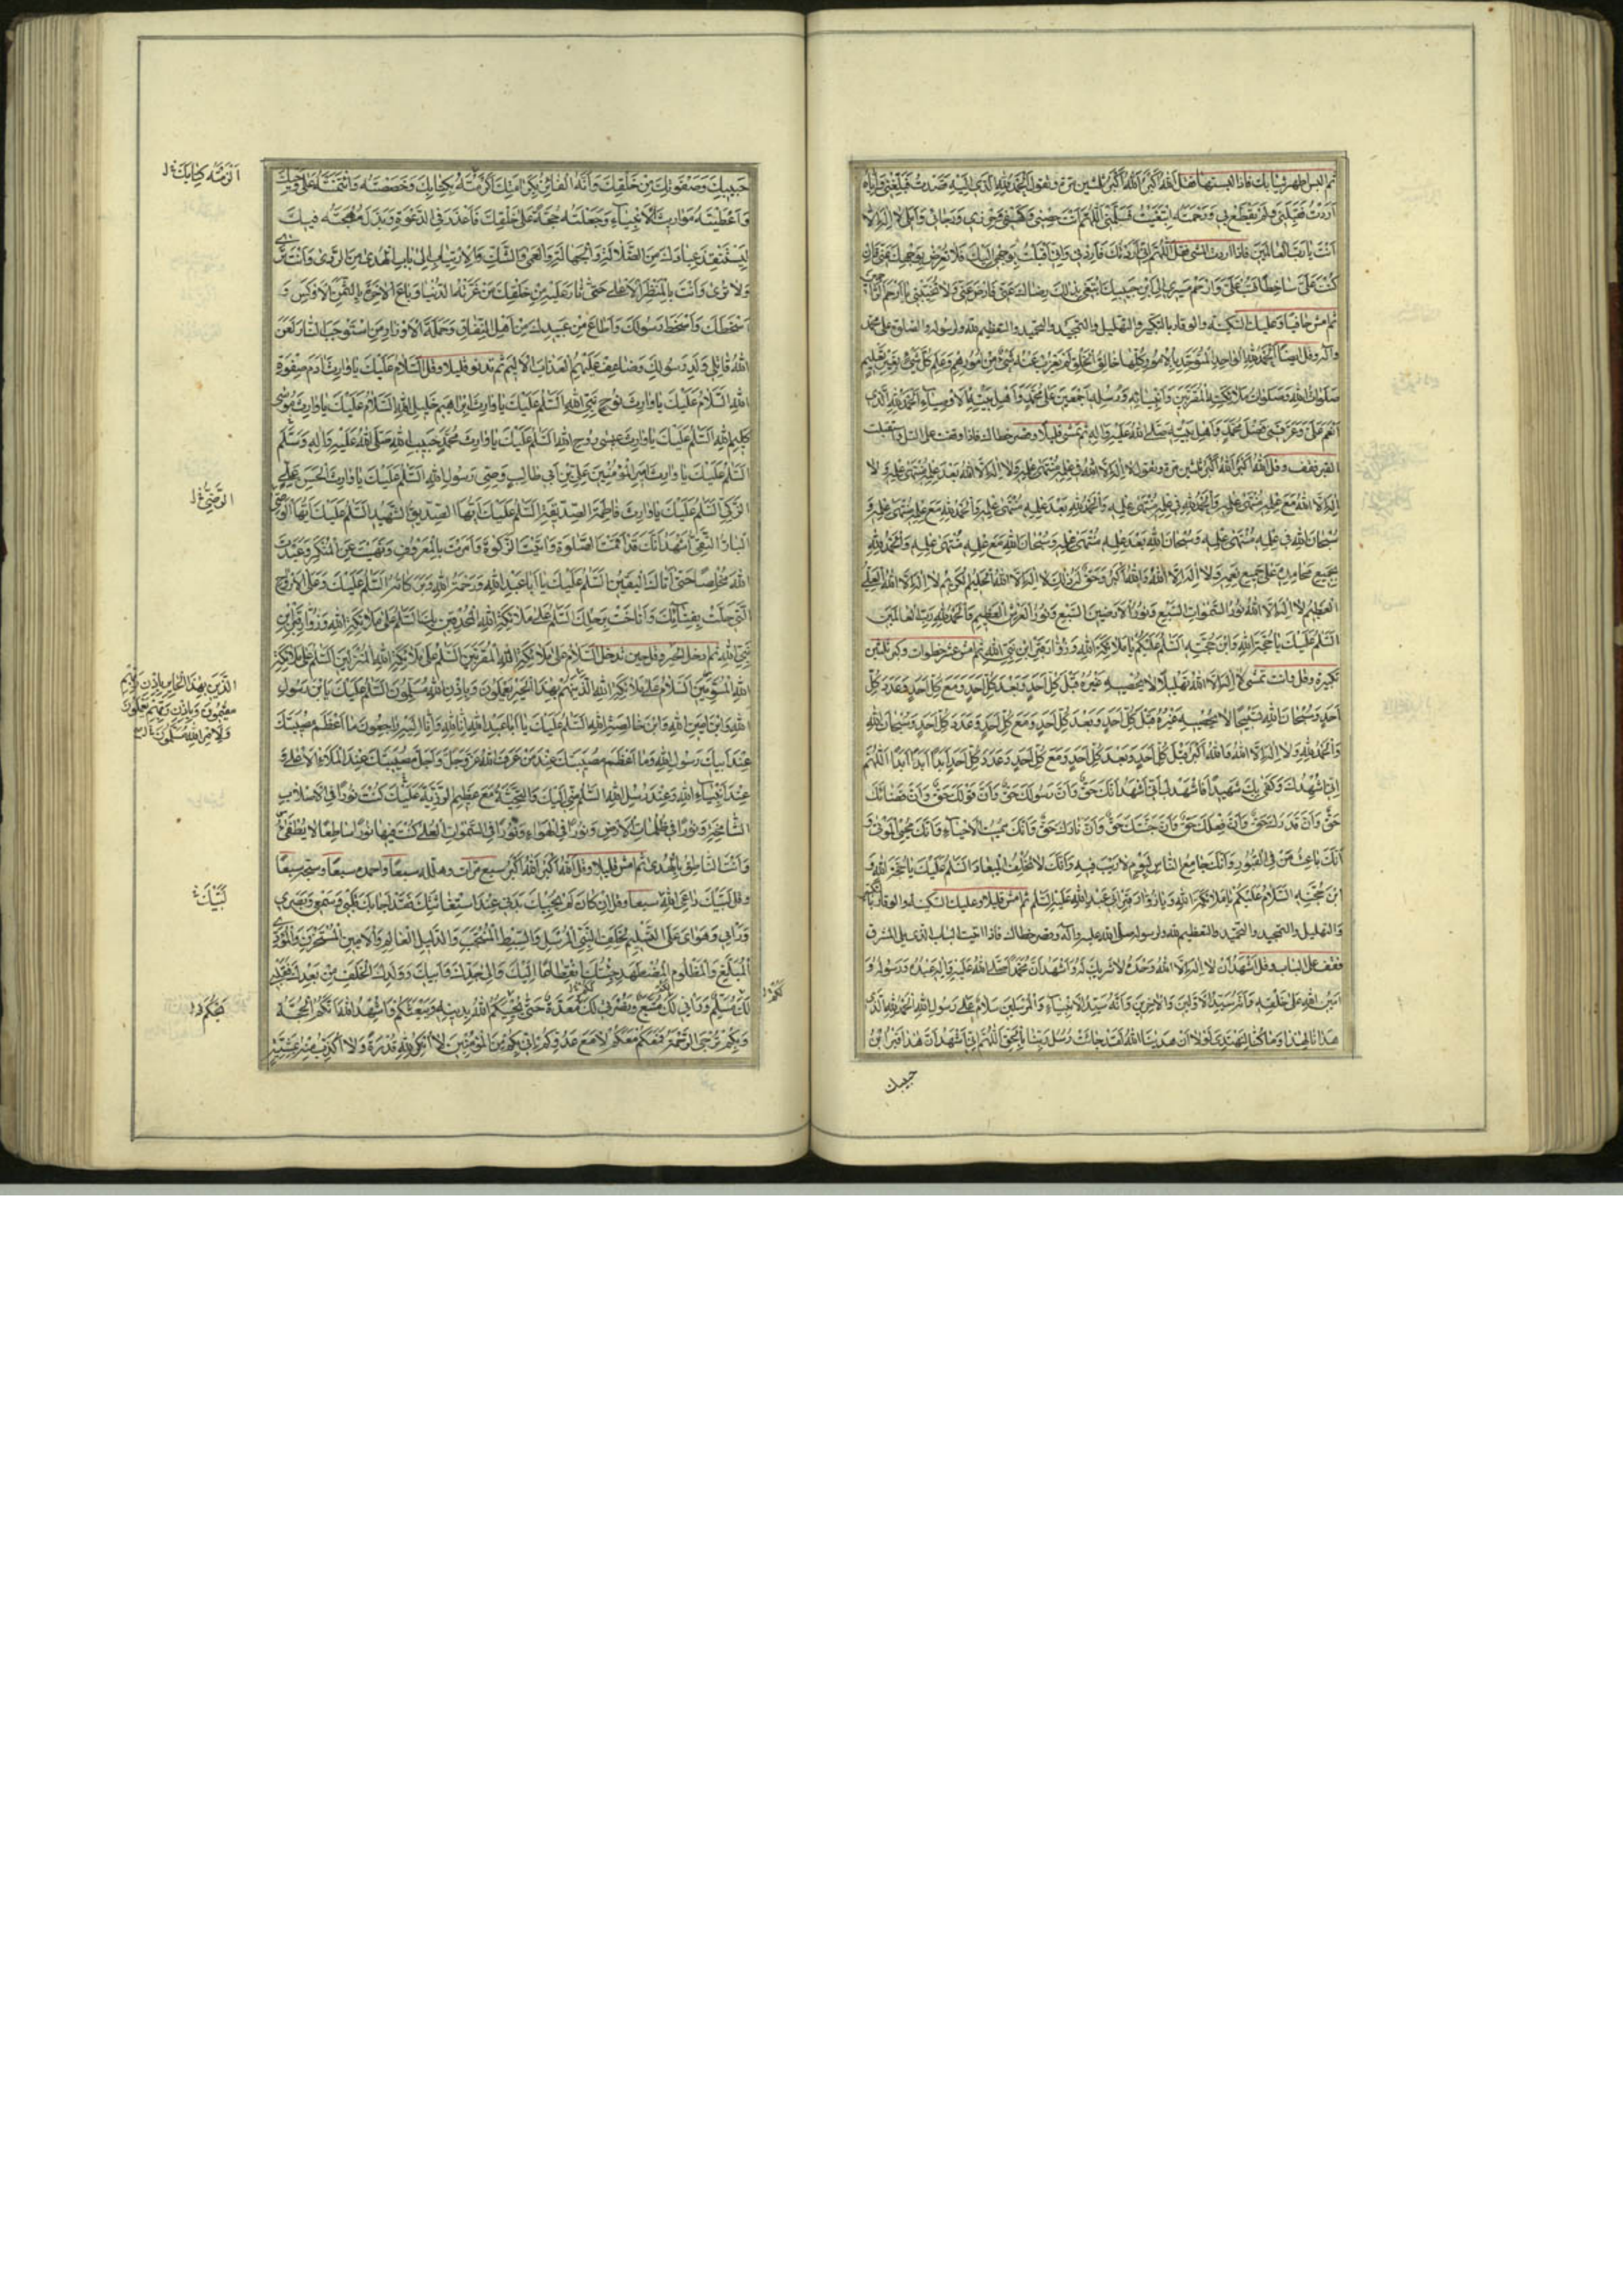 ثم البس اطهر ثيابك فاذا لبستها فقل اَللهُ اَكْبَرُ اَللهُ اَكْبَرُ ثلثين مرة وتقول اَلْحَمْدُ لِلّٰهِ الَّذى اِلَيْهِ قَصَدْتُ فَبَلَّغَنى وَاِيَّاهُ
اَرَدْتُ فَقَبِلَنى وَلَمْ يَقْطَعْ بى وَرَحْمَتَهُ ابْتَغَيْتُ فَسَلَّمَنى اَللّٰهُمَّ اَنْتَ حِصْنى وَكَهْفى وَحِرْزى وَرَجائى وَاَمَلى لا اِلٰهَ اِلّا
اَنْتَ يا رَبَّ الْعالَمينَ فاذا اردت المشى فقل اَللّٰهُمَّ اِنّى اَرَدْتُكَ فَاَرِدْنى وَاِنّى اَقْبَلْتُ بِوَجْهى اِلَيْكَ فَلا تُعْرِضْ بِوَجْهِكَ عَنّى فَاِنْ
كُنْتَ عَلَىَّ ساخِطًا فَتُبْ عَلَىَّ وَارْحَمْ مَسيرى اِلَى ابْنِ حَبيبِكَ اَبْتَغى بِذٰلِكَ رِضاكَ عَنّى فَارْضَ عَنّى وَلا تُخَيِّبْنى يا اَرْحَمَ الرّاحِمينَ
ثم امش حافيا وعليك السكينة والوقار بالتكبير والتهليل والتمجيد والتحميد والتعظيم لله ولرسوله والصلوة على محمد
وآله وقل ايضا اَلْحَمْدُ لِلّٰهِ الْواحِدِ الْمُتَوَحِّدِ بِالْاُمُورِ كُلِّها خالِقِ الْخَلْقِ لَمْ يَعْزُبْ عَنْهُ شَىْءٌ مِنْ اُمُورِهِمْ وَعَلِمَ كُلَّ شَىْءٍ بِغَيْرِ تَعْليمٍ
صَلَواتُ اللهِ وَصَلَواتُ مَلائِكَتِهِ الْمُقَرَّبينَ وَاَنْبِيائِهِ وَرُسُلِهِ اَجْمَعينَ عَلى مُحَمَّدٍ وَاَهْلِ بَيْتِهِ الْاَوْصِياءِ اَلْحَمْدُ لِلّٰهِ الَّذى
اَنْعَمَ عَلَىَّ وَعَرَّفَنى فَضْلَ مُحَمَّدٍ وَاَهْلِ بَيْتِهِ صَلَّى اللهُ عَلَيْهِ وَآلِهِ ثم تمشى قليلا وقصر خطاك فاذا وقفت على التل واستقبلت
القبر فقف وقل اَللهُ اَكْبَرُ اَللهُ اَكْبَرُ ثلثين مرة وتقول لا اِلٰهَ اِلَّا اللهُ فى عِلْمِهِ مُنْتَهى عِلْمِهِ وَلا اِلٰهَ اِلَّا اللهُ بَعْدَ عِلْمِهِ مُنْتَهى عِلْمِهِ وَلا
اِلٰهَ اِلَّا اللهُ مَعَ عِلْمِهِ مُنْتَهى عِلْمِهِ وَالْحَمْدُ لِلّٰهِ فى عِلْمِهِ مُنْتَهى عِلْمِهِ وَالْحَمْدُ لِلّٰهِ بَعْدَ عِلْمِهِ مُنْتَهى عِلْمِهِ وَالْحَمْدُ لِلّٰهِ مَعَ عِلْمِهِ مُنْتَهى عِلْمِهِ وَ
سُبْحانَ اللهِ فى عِلْمِهِ مُنْتَهى عِلْمِهِ وَسُبْحانَ اللهِ بَعْدَ عِلْمِهِ مُنْتَهى عِلْمِهِ وَسُبْحانَ اللهِ مَعَ عِلْمِهِ مُنْتَهى عِلْمِهِ وَالْحَمْدُ لِلّٰهِ
بِجَميعِ مَحامِدِهِ عَلى جَميعِ نِعَمِهِ وَلا اِلٰهَ اِلَّا اللهُ وَاللهُ اَكْبَرُ وَحَقٌّ لَهُ ذٰلِكَ لا اِلٰهَ اِلَّا اللهُ الْحَليمُ الْكَريمُ لا اِلٰهَ اِلَّا اللهُ الْعَلِىُّ
الْعَظيمُ لا اِلٰهَ اِلَّا اللهُ نُورُ السَّمٰواتِ السَّبْعِ وَنُورُ الْاَرَضينَ السَّبْعِ وَنُورُ الْعَرْشِ الْعَظيمِ وَالْحَمْدُ لِلّٰهِ رَبِّ الْعالَمينَ
اَلسَّلٰمُ عَلَيْكَ يا حُجَّةَ اللهِ وَابْنَ حُجَّتِهِ اَلسَّلٰمُ عَلَيْكُمْ يا مَلائِكَةَ اللهِ وَزُوّارَ قَبْرِ ابْنِ نَبِىِّ اللهِ ثم امش عشر خطوات وكبر ثلثين
تكبيرة وقل وانت تمشى لا اِلٰهَ اِلَّا اللهُ تَهْليلًا لا يُحْصيهِ غَيْرُهُ قَبْلَ كُلِّ اَحَدٍ وَبَعْدَ كُلِّ اَحَدٍ وَمَعَ كُلِّ اَحَدٍ وَعَدَدَ كُلِّ
اَحَدٍ وَسُبْحانَ اللهِ تَسْبيحًا لا يُحْصيهِ غَيْرُهُ قَبْلَ كُلِّ اَحَدٍ وَبَعْدَ كُلِّ اَحَدٍ وَمَعَ كُلِّ اَحَدٍ وَعَدَدَ كُلِّ اَحَدٍ وَسُبْحانَ اللهِ
وَالْحَمْدُ لِلّٰهِ وَلا اِلٰهَ اِلَّا اللهُ وَاللهُ اَكْبَرُ قَبْلَ كُلِّ اَحَدٍ وَبَعْدَ كُلِّ اَحَدٍ وَمَعَ كُلِّ اَحَدٍ وَعَدَدَ كُلِّ اَحَدٍ اَبَدًا اَبَدًا اَبَدًا اَللّٰهُمَّ
اِنّى اُشْهِدُكَ وَكَفى بِكَ شَهيدًا فَاشْهَدْ لى اَنّى اَشْهَدُ اَنَّكَ حَقٌّ وَاَنَّ رَسُولَكَ حَقٌّ وَاَنَّ قَوْلَكَ حَقٌّ وَاَنَّ قَضائَكَ
حَقٌّ وَاَنَّ قَدَرَكَ حَقٌّ وَاَنَّ فِعْلَكَ حَقٌّ وَاَنَّ جَنَّتَكَ حَقٌّ وَاَنَّ نارَكَ حَقٌّ وَاَنَّكَ مُميتُ الْاَحْياءِ وَاَنَّكَ مُحْيِى الْمَوْتى وَ
اَنَّكَ باعِثُ مَنْ فِى الْقُبُورِ وَاَنَّكَ جامِعُ النّاسِ لِيَوْمٍ لا رَيْبَ فيهِ وَاَنَّكَ لا تُخْلِفُ الْميعادَ اَلسَّلٰمُ عَلَيْكَ يا حُجَّةَ اللهِ وَ
ابْنَ حُجَّتِهِ اَلسَّلامُ عَلَيْكُمْ يا مَلائِكَةَ اللهِ وَيا زُوّارَ قَبْرِ اَبى عَبْدِ اللهِ عَلَيْهِ السَّلٰمُ ثم امش قليلا وعليك السكينة والوقار بالتكبير
والتهليل والتمجيد والتحميد والتعظيم لله ولرسوله صلى الله عليه وآله وقصر خطاك فاذا اتيت الباب الذى يلى المشرق
فقف على الباب وقل اَشْهَدُ اَنْ لا اِلٰهَ اِلَّا اللهُ وَحْدَهُ لا شَريكَ لَهُ وَاَشْهَدُ اَنَّ مُحَمَّدًا صَلَّى اللهُ عَلَيْهِ وَآلِهِ عَبْدُهُ وَرَسُولُهُ وَ
اَمينُ اللهِ عَلى خَلْقِهِ وَاَنَّهُ سَيِّدُ الْاَوَّلينَ وَالْآخِرينَ وَاَنَّهُ سَيِّدُ الْاَنْبِياءِ وَالْمُرْسَلينَ سَلامٌ عَلى رَسُولِ اللهِ اَلْحَمْدُ لِلّٰهِ الَّذى
هَدانا لِهٰذا وَما كُنّا لِنَهْتَدِىَ لَوْلا اَنْ هَدينَا اللهُ لَقَدْ جائَتْ رُسُلُ رَبِّنا بِالْحَقِّ اَللّٰهُمَّ اِنّى اَشْهَدُ اَنَّ هٰذا قَبْرُ ابْنِ
حبيبك
حَبيبِكَ وَصَفْوَتِكَ مِنْ خَلْقِكَ وَاَنَّهُ الْفائِزُ بِكَرامَتِكَ اَكْرَمْتَهُ بِكِتابِكَ وَخَصَصْتَهُ وَائْتَمَنْتَهُ عَلى وَحْيِكَ
وَاَعْطَيْتَهُ مَواريثَ الْاَنْبِياءِ وَجَعَلْتَهُ حُجَّةً عَلى خَلْقِكَ فَاَعْذَرَ فِى الدَّعْوَةِ وَبَذَلَ مُهْجَتَهُ فيكَ
لِيَسْتَنْقِذَ عِبادَكَ مِنَ الضَّلالَةِ وَالْجَهالَةِ وَالْعَمى وَالشَّكِّ وَالْاِرْتِيابِ اِلى بابِ الْهُدى مِنَ الرَّدى وَاَنْتَ تَرى
وَلا تُرى وَاَنْتَ بِالْمَنْظَرِ الْاَعْلى حَتّى ثارَ عَلَيْهِ مِنْ خَلْقِكَ مَنْ غَرَّتْهُ الدُّنْيا وَباعَ الْآخِرَةَ بِالثَّمَنِ الْاَوْكَسِ وَ
اَسْخَطَكَ وَاَسْخَطَ رَسُولَكَ وَاَطاعَ مِنْ عَبيدِكَ مِنْ اَهْلِ النِّفاقِ وَحَمَلَةَ الْاَوْزارِ مَنِ اسْتَوْجَبَ النّارَ لَعَنَ
اللهُ قاتِلى وَلَدِ رَسُولِكَ وَضاعَفَ عَلَيْهِمُ الْعَذابَ الْاَليمَ ثم تدنو قليلا وقل اَلسَّلامُ عَلَيْكَ يا وارِثَ آدَمَ صِفْوَةِ
اللهِ اَلسَّلامُ عَلَيْكَ يا وارِثَ نُوحٍ نَبِىِّ اللهِ اَلسَّلٰمُ عَلَيْكَ يا وارِثَ اِبْراهيمَ خَليلِ اللهِ اَلسَّلامُ عَلَيْكَ يا وارِثَ مُوسى
كَليمِ اللهِ اَلسَّلٰمُ عَلَيْكَ يا وارِثَ عيسى رُوحِ اللهِ اَلسَّلٰمُ عَلَيْكَ يا وارِثَ مُحَمَّدٍ حَبيبِ اللهِ صَلَّى اللهُ عَلَيْهِ وَآلِهِ وَسَلَّمَ
اَلسَّلٰمُ عَلَيْكَ يا وارِثَ اَميرِ الْمُؤْمِنينَ عَلِىِّ بْنِ اَبى طالِبٍ وَصِىِّ رَسُولِ اللهِ اَلسَّلٰمُ عَلَيْكَ يا وارِثَ الْحَسَنِ بْنِ عَلِىٍّ
الزَّكِىِّ اَلسَّلٰمُ عَلَيْكَ يا وارِثَ فاطِمَةَ الصِّدّيقَةِ اَلسَّلٰمُ عَلَيْكَ اَيُّهَا الصِّدّيقُ الشَّهيدُ اَلسَّلٰمُ عَلَيْكَ اَيُّهَا الْوَصِىُّ
الْبارُّ التَّقِىُّ اَشْهَدُ اَنَّكَ قَدْ اَقَمْتَ الصَّلٰوةَ وَآتَيْتَ الزَّكٰوةَ وَاَمَرْتَ بِالْمَعْرُوفِ وَنَهَيْتَ عَنِ الْمُنْكَرِ وَعَبَدْتَ
اللهَ مُخْلِصًا حَتّى اَتاكَ الْيَقينُ اَلسَّلٰمُ عَلَيْكَ يا اَبا عَبْدِ اللهِ وَرَحْمَةُ اللهِ وَبَرَكاتُهُ اَلسَّلٰمُ عَلَيْكَ وَعَلَى الْاَرْواحِ
الَّتى حَلَّتْ بِفِنائِكَ وَاَناخَتْ بِرَحْلِكَ اَلسَّلٰمُ عَلى مَلائِكَةِ اللهِ الْمُحْدِقينَ بِكَ اَلسَّلٰمُ عَلى مَلائِكَةِ اللهِ وَزُوّارِ قَبْرِ ابْنِ
نَبِىِّ اللهِ ثم ادخل الحير وقل حين تدخل اَلسَّلامُ عَلى مَلائِكَةِ اللهِ الْمُقَرَّبينَ اَلسَّلٰمُ عَلى مَلائِكَةِ اللهِ الْمُنْزَلينَ اَلسَّلٰمُ عَلى مَلائِكَةِ
اللهِ الْمُسَوِّمينَ اَلسَّلامُ عَلى مَلائِكَةِ اللهِ الَّذينَ هُمْ بِهٰذَا الْحَيْرِ يَعْمَلُونَ وَبِاِذْنِ اللهِ مُسَلِّمُونَ اَلسَّلٰمُ عَلَيْكَ يَا ابْنَ رَسُولِ
اللهِ وَابْنَ اَمينِ اللهِ وَابْنَ خالِصَةِ اللهِ اَلسَّلٰمُ عَلَيْكَ يا اَبا عَبْدِ اللهِ اِنّا لِلّٰهِ وَاِنّا اِلَيْهِ راجِعُونَ ما اَعْظَمَ مُصيبَتَكَ
عِنْدَ اَبيكَ رَسُولِ اللهِ وَما اَعْظَمَ مُصيبَتَكَ عِنْدَ مَنْ عَرَفَ اللهَ عَزَّ وَجَلَّ وَاَجَلَّ مُصيبَتَكَ عِنْدَ الْمَلَاءِ الْاَعْلى وَ
عِنْدَ اَنْبِياءِ اللهِ وَعِنْدَ رُسُلِ اللهِ اَلسَّلٰمُ مِنّى اِلَيْكَ وَالتَّحِيَّةُ مَعَ عَظيمِ الرَّزِيَّةِ عَلَيْكَ كُنْتَ نُورًا فِى الْاَصْلابِ
الشّامِخَةِ وَنُورًا فى ظُلُماتِ الْاَرْضِ وَنُورًا فِى الْهَواءِ وَنُورًا فِى السَّمٰواتِ الْعُلى كُنْتَ فيها نُورًا ساطِعًا لا يُطْفى
وَاَنْتَ النّاطِقُ بِالْهُدى ثم امش قليلا وقل اَللهُ اَكْبَرُ اَللهُ اَكْبَرُ سبع مرات وهلله سبعا واحمده سبعا وسبحه سبعا
وقل لَبَّيْكَ داعِىَ اللهِ سبعا وقل اِنْ كانَ لَمْ يُجِبْكَ بَدَنى عِنْدَ اسْتِغاثَتِكَ فَقَدْ اَجابَكَ قَلْبى وَسَمْعى وَبَصَرى
وَرَاْيى وَهَواىَ عَلَى التَّسْليمِ لِخَلَفِ النَّبِىِّ الْمُرْسَلِ وَالسِّبْطِ الْمُنْتَجَبِ وَالدَّليلِ الْعالِمِ وَالْاَمينِ الْمُسْتَخْزَنِ وَالْمُؤَدِّى
الْمُبَلِّغِ وَالْمَظْلُومِ الْمُضْطَهَدِ جِئْتُكَ انْقِطاعًا اِلَيْكَ وَاِلى جَدِّكَ وَاَبيكَ وَوَلَدِكَ الْخَلَفِ مِنْ بَعْدِكَ فَقَلْبى
لَكَ مُسَلِّمٌ وَرَاْيى لَكَ مُتَّبِعٌ وَنُصْرَتى لَكَ مُعَدَّةٌ حَتّى يُحْيِيَكُمُ اللهُ بِدينِهِ وَيَبْعَثَكُمْ وَاُشْهِدُ اللهَ اَنَّكُمُ الْحُجَّةُ
وَبِكُمْ تُرْجَى الرَّحْمَةُ فَمَعَكُمْ مَعَكُمْ لا مَعَ عَدُوِّكُمْ اِنّى بِكُمْ مِنَ الْمُؤْمِنينَ لا اُنْكِرُ لِلّٰهِ قُدْرَةً وَلا اُكَذِّبُ مِنْهُ مَشِيَّةً
الرَّضِىُّ
لَبَّيْكَ
لَكُمْ